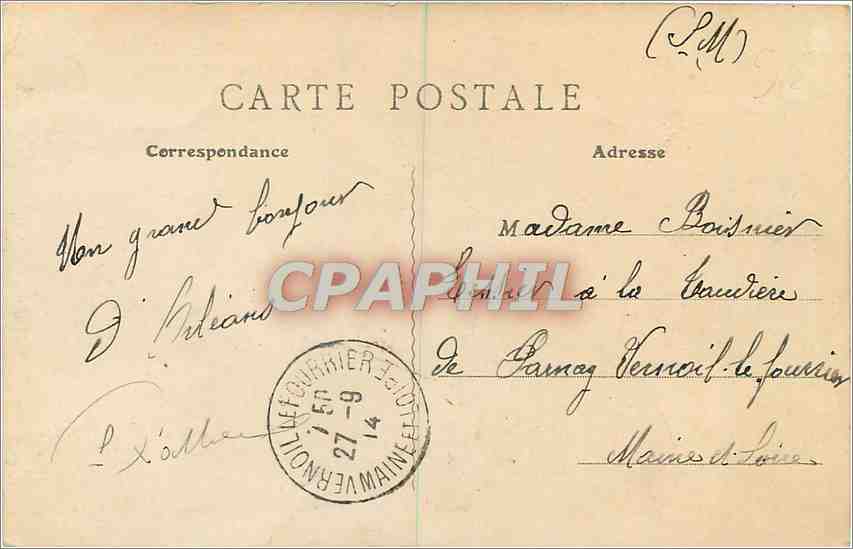 (S.M)
CARTE POSTALE
Correspondance
Adresse
Un grand bonjour
d'Orléans
Madame Boisnier
à la Taudière
de Parnay Vernoil-le-fourrier
Maine et Loire
CPAPHIL
VERNOIL LE FOURRIER
MAINE ET LOIRE
7 50
27 -9
14